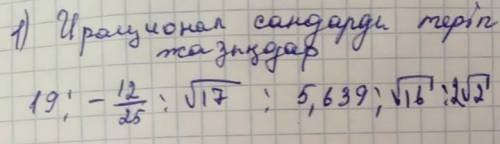 1) Ирационал сандарди теріп
жазыңдар
19; -12/25; √17; 5,639; √16; 2√2